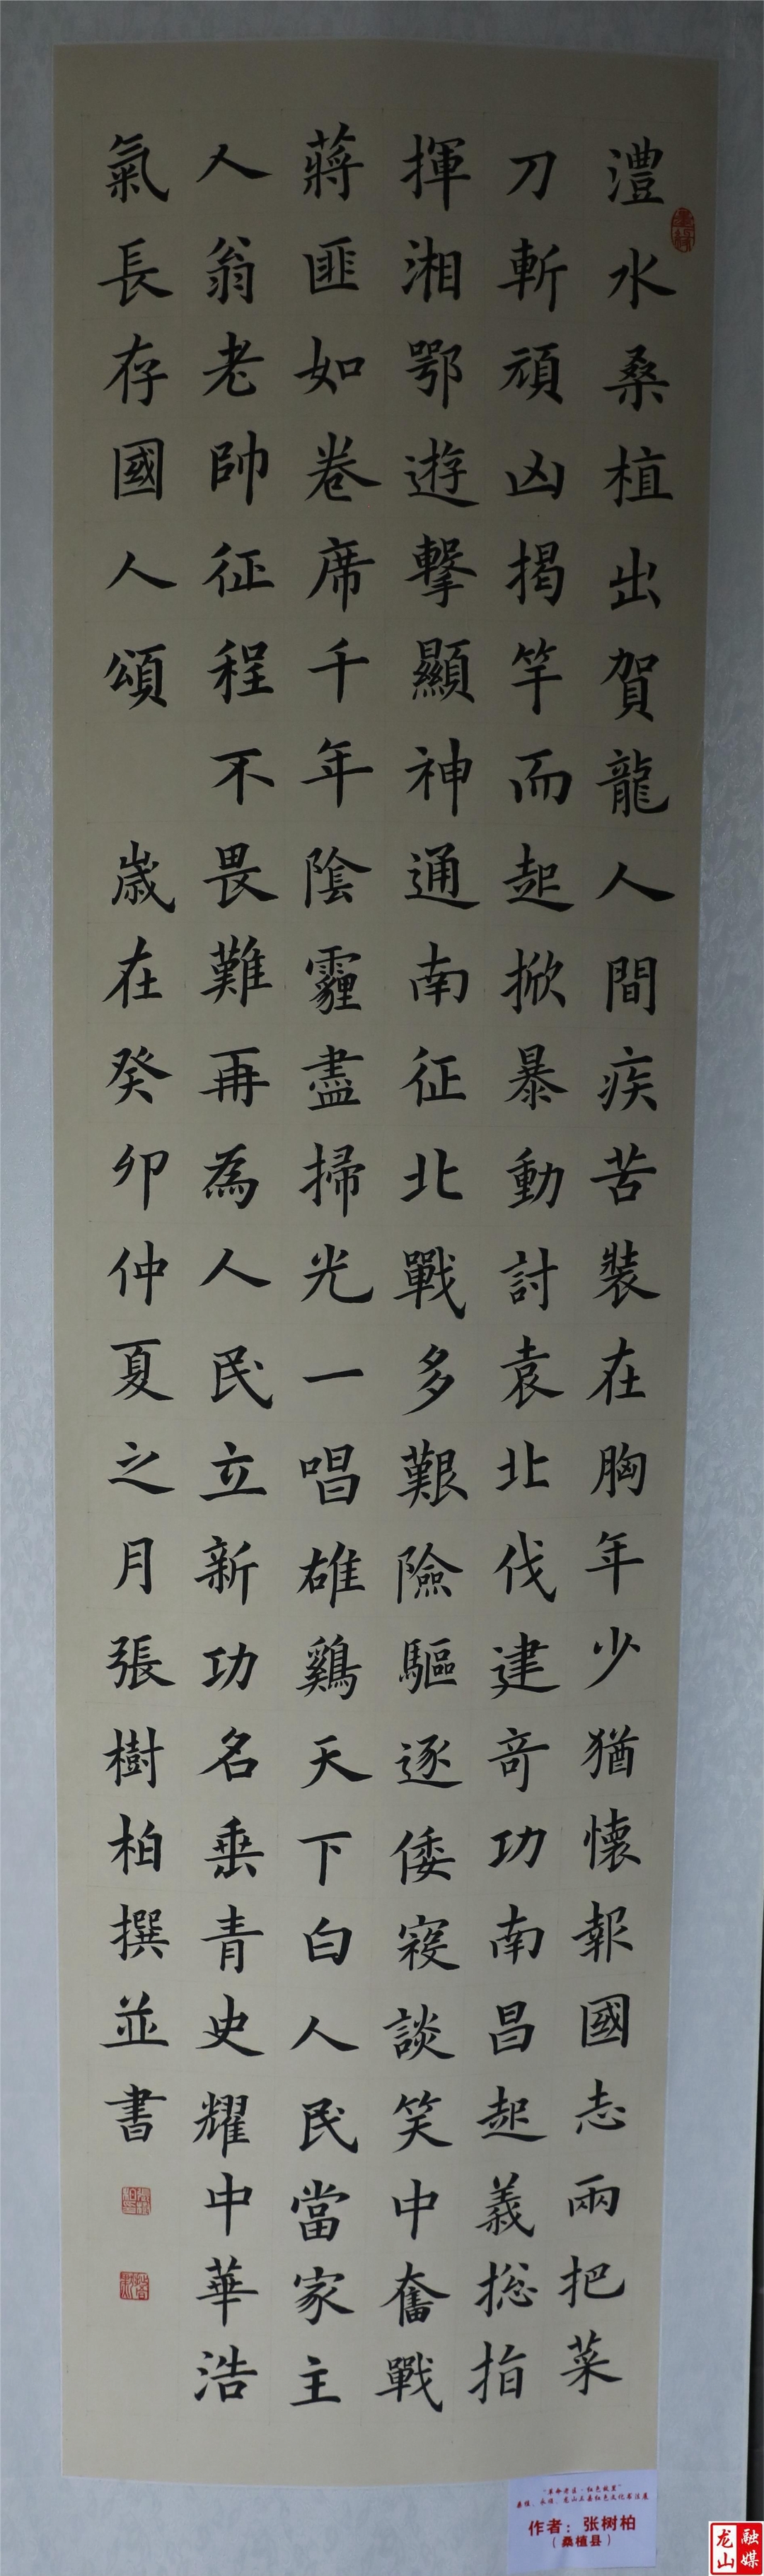 澧水桑植出賀龍人間疾苦裝在胸年少猶懷報國志兩把菜
刀斬頑凶揭竿而起掀暴動討袁北伐建奇功南昌起義總指
揮湘鄂遊擊顯神通南征北戰多艱險驅逐倭寇談笑中奮戰
蔣匪如卷席千年陰霾盡掃光一唱雄鷄天下白人民當家主
人翁老帥征程不畏難再為人民立新功名垂青史耀中華浩
氣長存國人頌 歲在癸卯仲夏之月張樹柏撰並書
“革命老区·红色故里”
桑植、永顺、龙山三县红色文化书法展
作者：张树柏
（桑植县）
龙山融媒